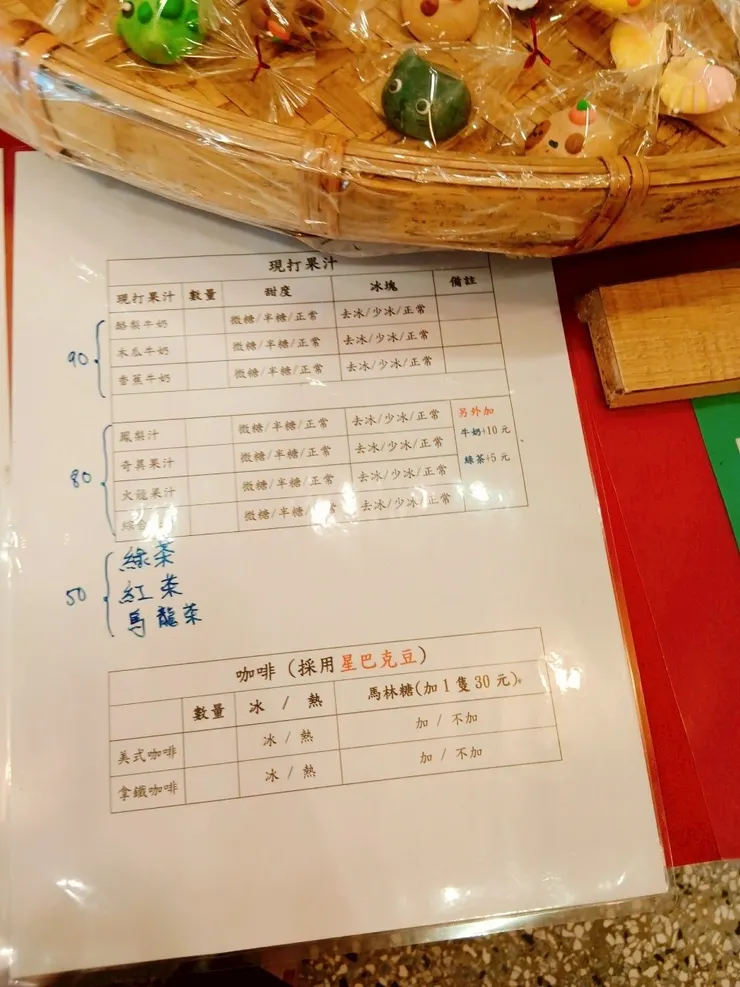 現打果汁
現打果汁 數量 甜度 冰塊 備註
90
酪梨牛奶 微糖/半糖/正常 去冰/少冰/正常
木瓜牛奶 微糖/半糖/正常 去冰/少冰/正常
香蕉牛奶 微糖/半糖/正常 去冰/少冰/正常
80
鳳梨汁 微糖/半糖/正常 去冰/少冰/正常 另外加
奇異果汁 微糖/半糖/正常 去冰/少冰/正常 牛奶+10 元
火龍果汁 微糖/半糖/正常 去冰/少冰/正常 綠茶+5 元
綜合 微糖/半糖/ 去冰/少冰/正常
50
綠茶
紅茶
烏龍茶
咖啡（採用星巴克豆）
數量 冰 / 熱 馬林糖(加 1 隻 30 元)。
美式咖啡 冰 / 熱 加 / 不加
拿鐵咖啡 冰 / 熱 加 / 不加